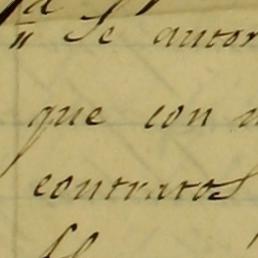 Se autor
que con
contratos